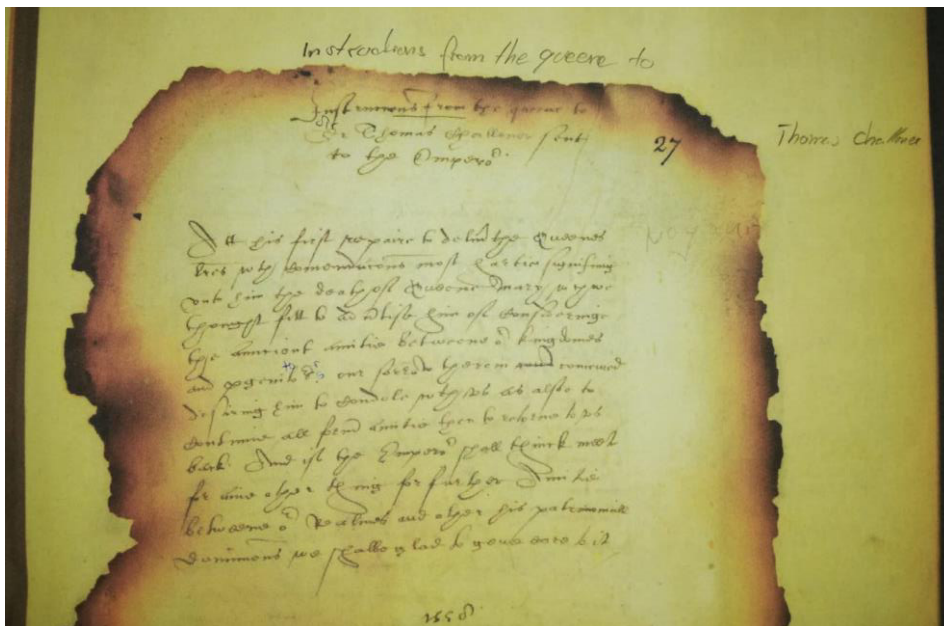 Instructions from the queene to
Instrucions from the queene to
Sr Thomas Challener sent
to the Emperor
27
Thomas Challner
Att his first repaire to deliu the Queenes
lres wth comendacons most hartie signifiing
vnto him the death of Queene Mary wch we
thought fitt to aduertise him of consideringe
the auncient amitie betweene or kingdomes
and progenitors our sorrow therein conceived
desiring him to condole wth vs as also to
continue all frend amitie then to retorne to vs
back. And if the Emperor shall thinck meet
for anie other thing for further Amitie
betweene or Realmes and other his patrimoniall
dominions we shalbe glad to geue eare to it
1558